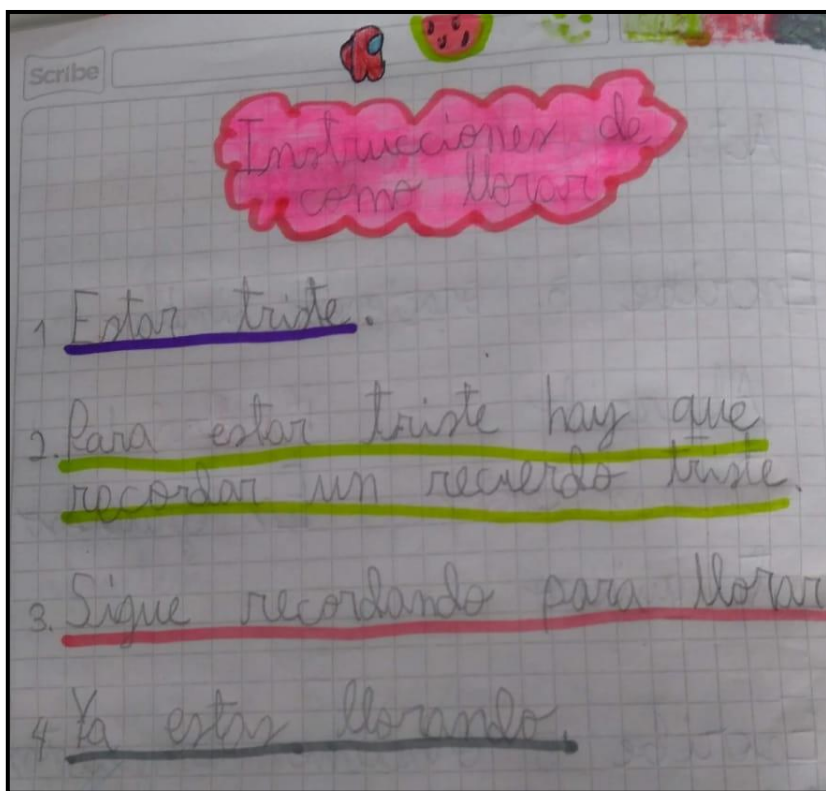 Scribe
Instrucciones de
como llorar
1 Estar triste.
2. Para estar triste hay que
recordar un recuerdo triste.
3. Sigue recordando para llorar
4 Ya estas llorando.